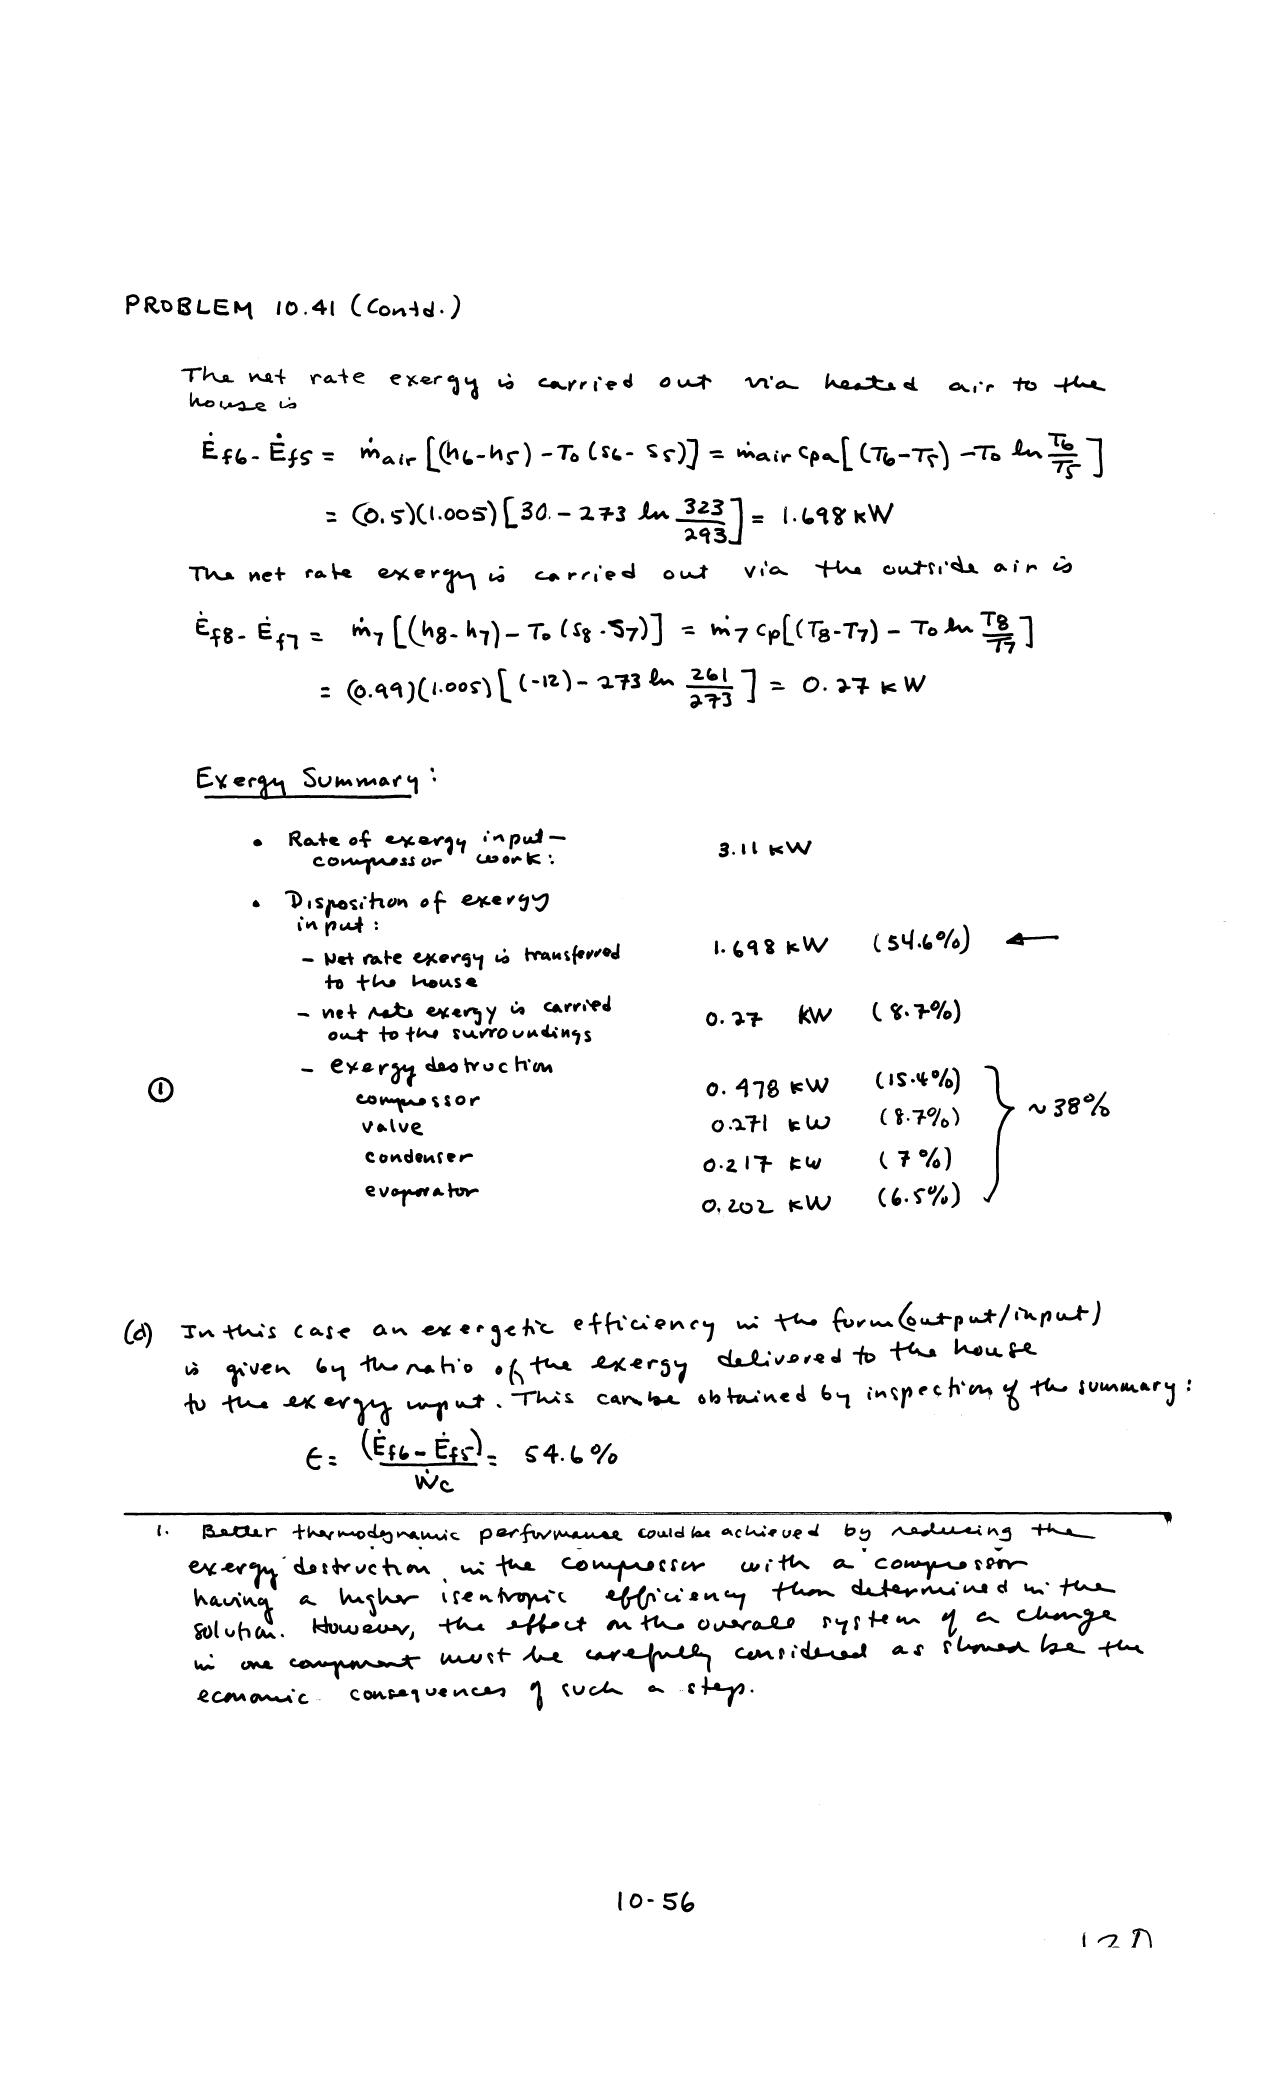 PROBLEM 10.41 (Contd.)
The net rate exergy is carried out via heated air to the
house is
Ėf6 - Ėf5 = ṁair [(h6-h5) - To (s6 - s5)] = ṁair cpa[(T6-T5) - To ln T6/T5]
= (0.5)(1.005)[30. - 273 ln 323/293] = 1.698 kW
The net rate exergy is carried out via the outside air is
Ėf8 - Ėf7 = ṁ7 [(h8-h7) - To (s8-s7)] = ṁ7 cp[(T8-T7) - To ln T8/T7]
= (0.99)(1.005)[(-12) - 273 ln 261/273] = 0.27 kW
Exergy Summary:
• Rate of exergy input - 
compressor work: 3.11 kW
• Disposition of exergy
input:
- Net rate exergy is transferred 1.698 kW (54.6%) ←
to the house
- net rate exergy is carried 0.27 kW (8.7%)
out to the surroundings
- exergy destruction
① compressor 0.478 kW (15.4%)
valve 0.271 kW (8.7%)
condenser 0.217 kW (7%)
evaporator 0.202 kW (6.5%)
} ~38%
(d) In this case an exergetic efficiency in the form (output/input)
is given by the ratio of the exergy delivered to the house
to the exergy input. This can be obtained by inspection of the summary:
ϵ = (Ėf6 - Ėf5)/Ẇc = 54.6%
1. Better thermodynamic performance could be achieved by reducing the
exergy destruction in the compressor with a compressor
having a higher isentropic efficiency than determined in the
solution. However, the effect on the overall system of a change
in one component must be carefully considered as should be the
economic consequences of such a step.
10-56